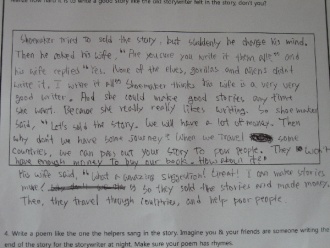 how hard it is to write like the old storywriter felt in the story, don't you?
Shoemaker tried to sold the story, but suddenly he change his mind.
Then he asked his wife, "Are you sure you write it them all?" and
his wife replies "Yes. None of the elves, gorillas and aliens didn't
write it. I write it all" Shoemaker thinks his wife is a very very
good writer. And she could make good stories any time
she want. Because she really really likes writing. The shoemaker
said, "Let's sold the story. We will have a lot of money. Then
why don't we have some Journey? when we travel some
Countries, we can pass out your story to poor people. They won't
have enough money to buy our book. How about it?"
his wife said, "What a amazing suggestion! Great! I can make stories
more! So they sold the stories and made money.
Then, they travel through countries, and help poor people.
4. Write a poem like the one the helpers sang in the story. Imagine you & your friends are someone writing the
end of the story for the storywriter at night. Make sure your poem has rhymes.